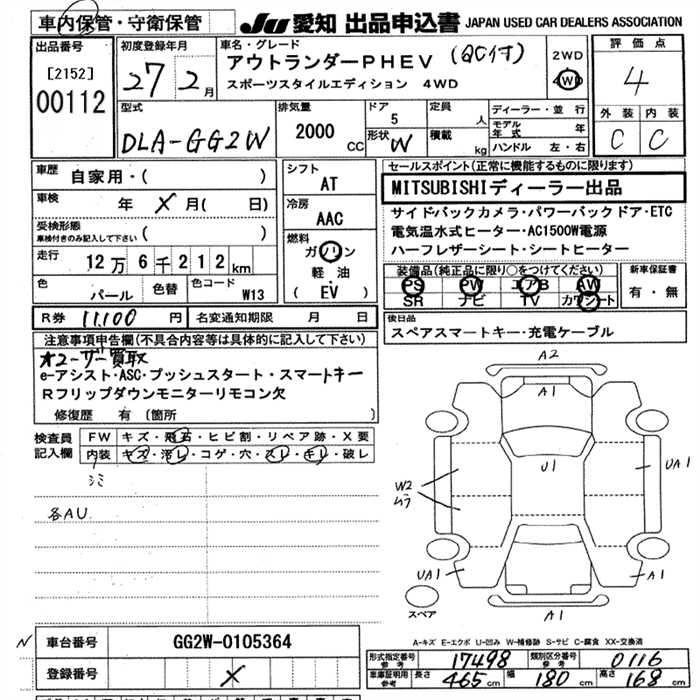 車内保管・守衛保管
JU 愛知 出品申込書 JAPAN USED CAR DEALERS ASSOCIATION
出品番号
[2152]
00112
初度登録年月
27年 2月
車名・グレード
アウトランダーPHEV (QC付)
スポーツスタイルエディション 4WD
2WD
4WD
評価点
4
外装 内装
C C
型式
DLA-GG2W
排気量
2000 CC
ドア
5
形状
W
定員
人
積載
kg
ディーラー・並行
モデル年式 年
ハンドル 左・右
車歴
自家用・( )
車検
年 X 月( 日)
受検形態
車検付きのみ記入して下さい ( )
走行
12万6千212km
色
パール
色替
色コード
W13
シフト
AT
冷房
AAC
燃料
ガソリン
軽・油
( EV )
セールスポイント(正常に機能するものに限ります)
MITSUBISHIディーラー出品
サイドバックカメラ・パワーバックドア・ETC
電気温水式ヒーター・AC1500W電源
ハーフレザーシート・シートヒーター
装備品(純正品に限り○をつけてください)
PS PW エアB AW
SR ナビ TV カワシート
新車保証書
有・無
R券 11,100 円
名変通知期限 月 日
後日品
スペアスマートキー・充電ケーブル
注意事項申告欄(不具合内容等は具体的に記入して下さい)
オユーザー買取
e-アシスト・ASC・プッシュスタート・スマートキー
Rフリップダウンモニターリモコン欠
修復歴 有 (箇所 )
検査員記入欄
FW キズ・飛石・ヒビ割・リペア跡・X要
内装 キズ・汚レ・コゲ・穴・スレ・キレ・破レ
シミ
各AU
A2
A1
U1
UA1
W2
ムラ
UA1
A1
A1
スペア
A-キズ E-エクボ U-凹み W-補修跡 S-サビ C-腐食 XX-交換済
N
車台番号
GG2W-0105364
登録番号
X
形式指定番号 参考 17498
類別区分番号 参考 0116
車庫証明用 参考 長さ 465cm 幅 180cm 高さ 168cm